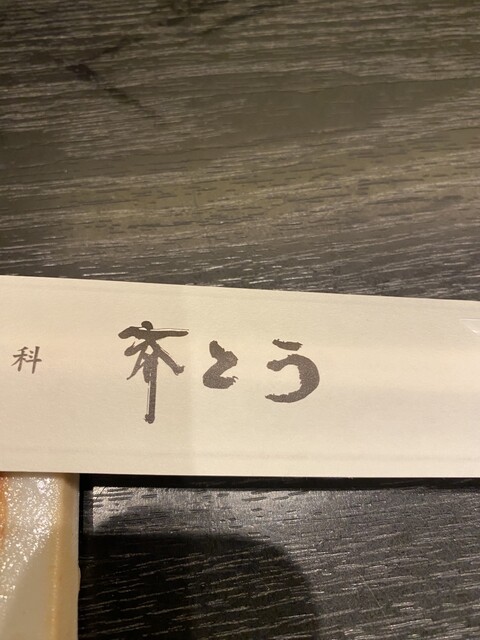 科 斉とう